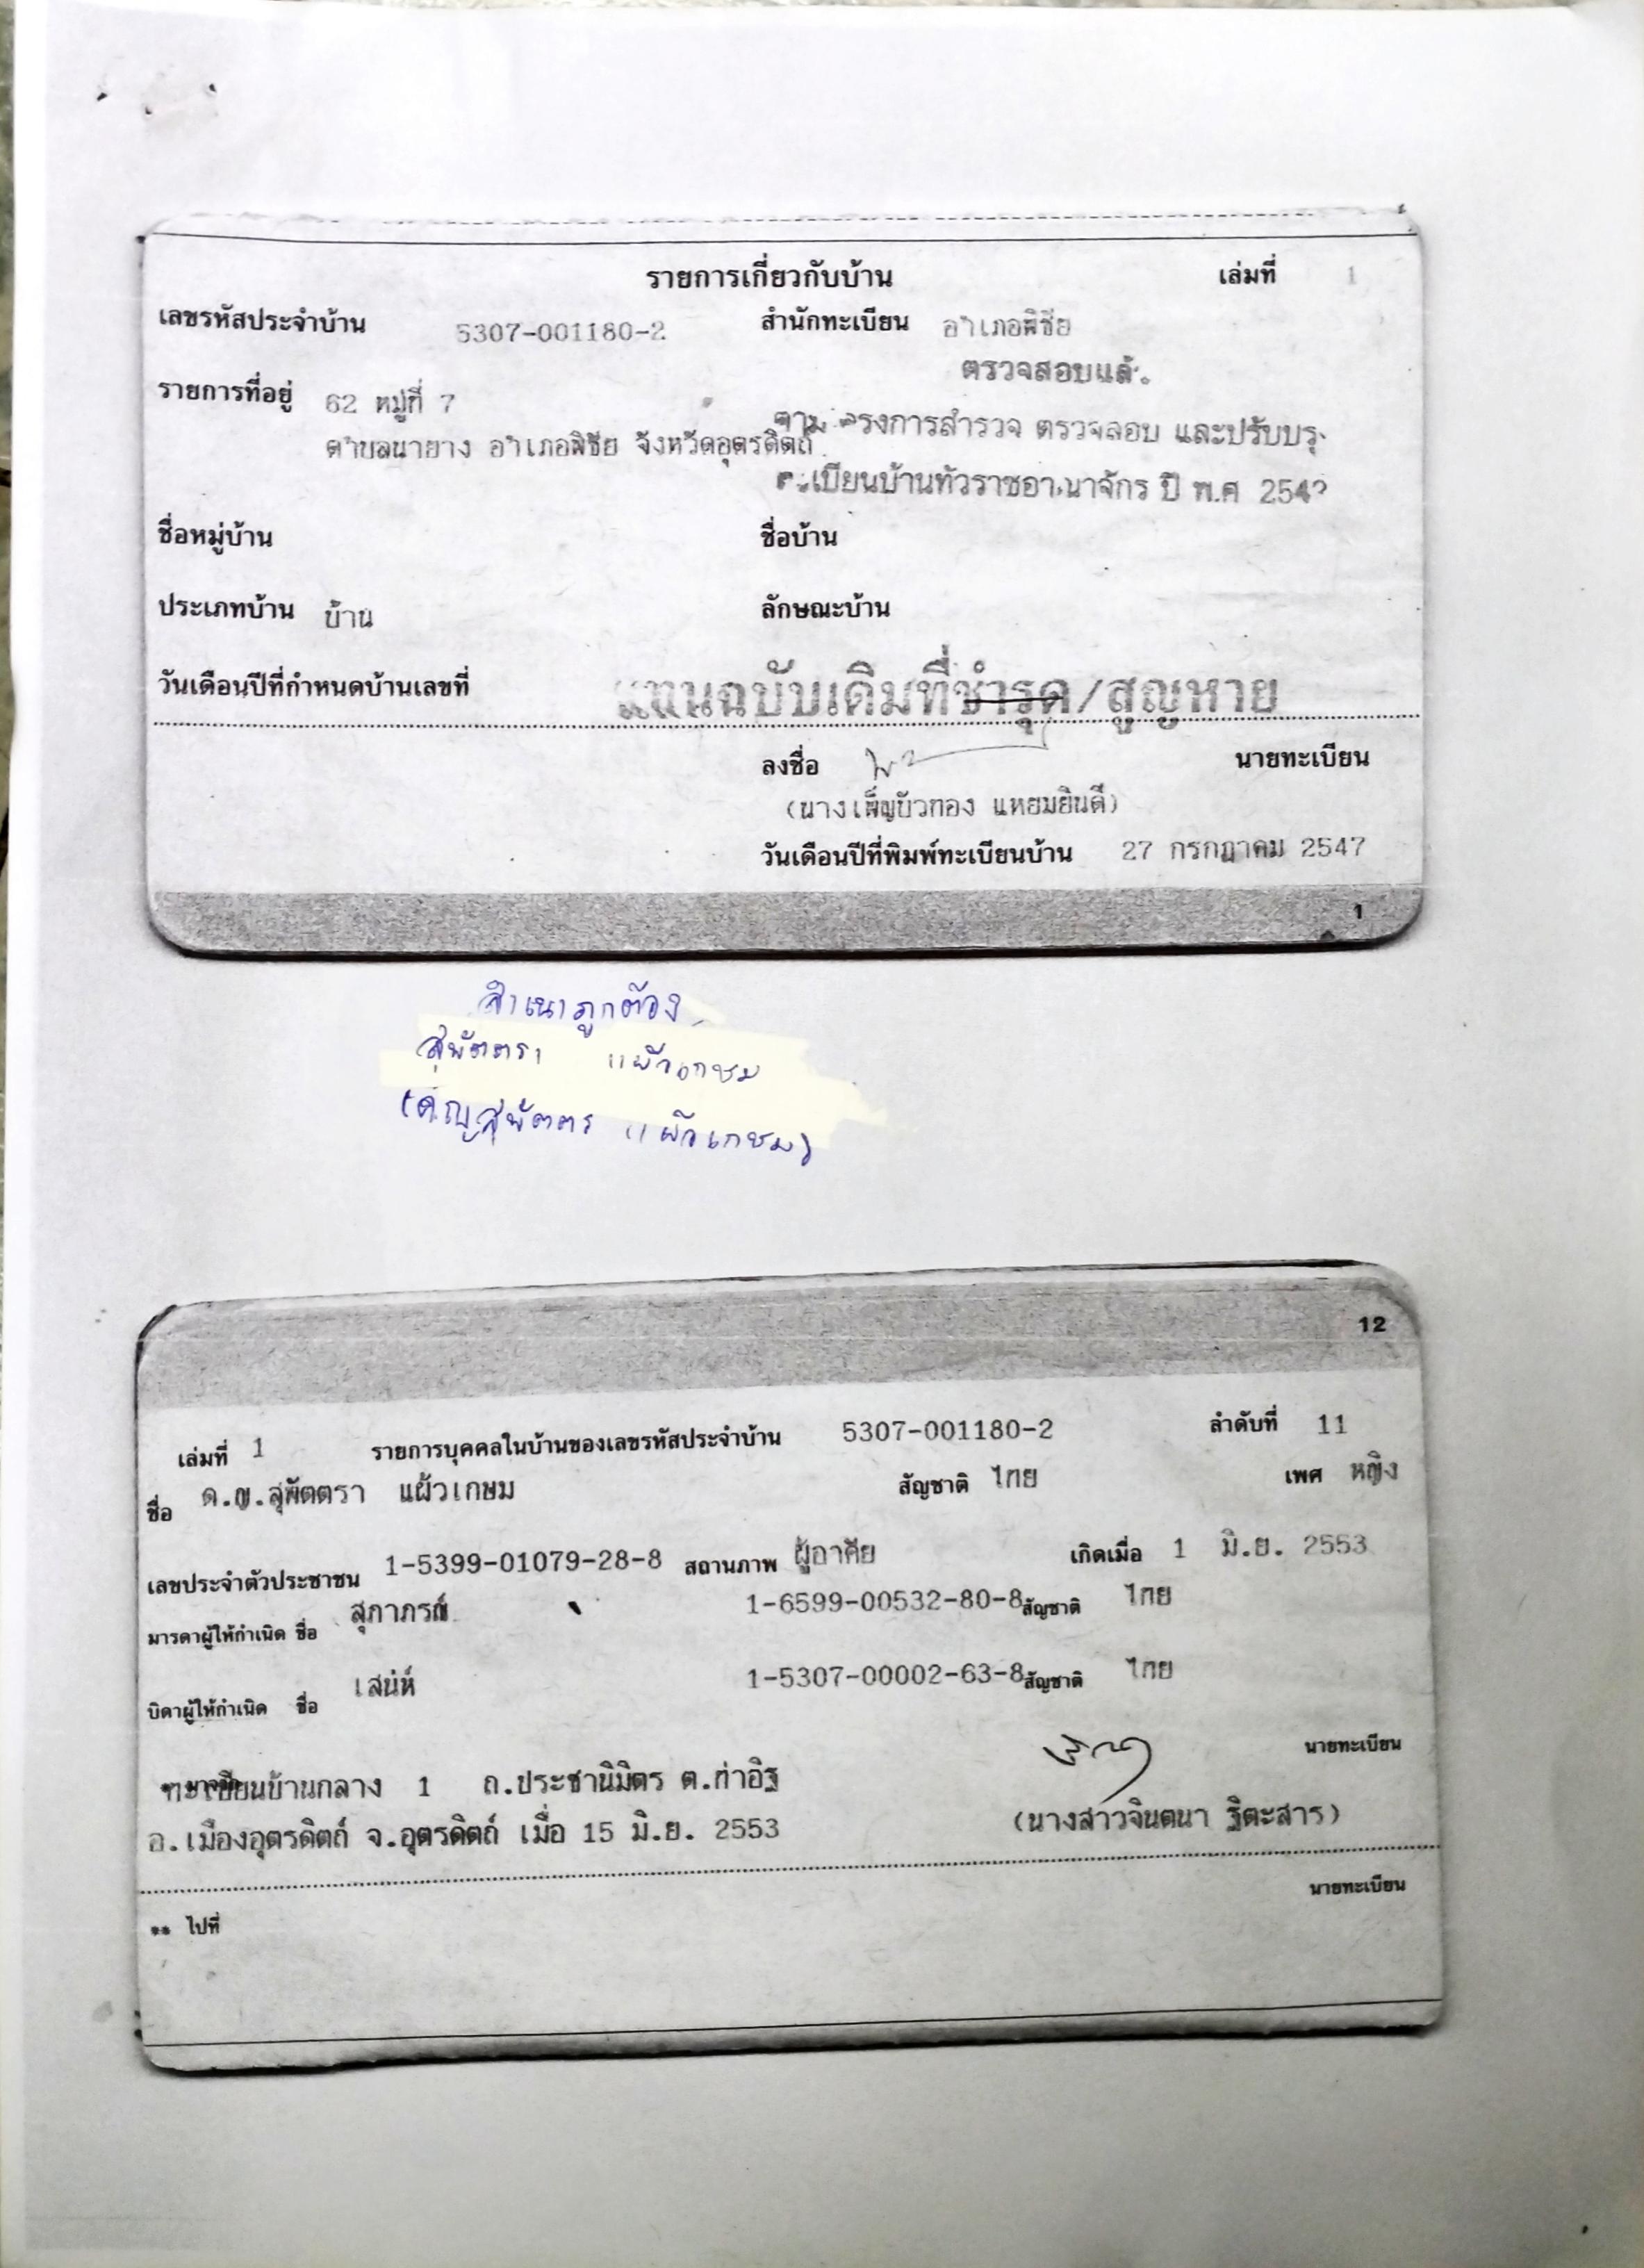 รายการเกี่ยวกับบ้าน เล่มที่ 1
เลขรหัสประจำบ้าน 5307-001180-2 สำนักทะเบียน อำเภอพิชัย
ตรวจสอบแล้ว
รายการที่อยู่ 62 หมู่ที่ 7
ตามโครงการสำรวจ ตรวจสอบ และปรับปรุง
ตำบลนายาง อำเภอพิชัย จังหวัดอุตรดิตถ์
ทะเบียนบ้านทั่วราชอาณาจักร ปี พ.ศ
ชื่อหมู่บ้าน ชื่อบ้าน
ประเภทบ้าน บ้าน ลักษณะบ้าน
วันเดือนปีที่กำหนดบ้านเลขที่
แทนฉบับเดิมที่ชำรุด/สูญหาย
ลงชื่อ นายทะเบียน
(นางเพ็ญบัวทอง แหยมยินดี)
วันเดือนปีที่พิมพ์ทะเบียนบ้าน 27 กรกฎาคม 2547
1
สำเนาถูกต้อง
สุพัตตรา แผ้วเกษม
(ด.ญ สุพัตตรา แผ้วเกษม)
12
เล่มที่ 1 รายการบุคคลในบ้านของเลขรหัสประจำบ้าน 5307-001180-2 ลำดับที่ 11
ชื่อ ด.ญ.สุพัตตรา แผ้วเกษม สัญชาติ ไทย เพศ หญิง
เลขประจำตัวประชาชน 1-5399-01079-28-8 สถานภาพ ผู้อาศัย เกิดเมื่อ 1 มิ.ย. 2553
มารดาผู้ให้กำเนิด ชื่อ สุภาภรณ์ 1-6599-00532-80-8 สัญชาติ ไทย
บิดาผู้ให้กำเนิด ชื่อ เสน่ห์ 1-5307-00002-63-8 สัญชาติ ไทย
นายทะเบียน
ทะเบียนบ้านกลาง 1 ถ.ประชานิมิตร ต.ท่าอิฐ
อ.เมืองอุตรดิตถ์ จ.อุตรดิตถ์ เมื่อ 15 มิ.ย. 2553
(นางสาวจินตนา ฐิตะสาร)
นายทะเบียน
** ไปที่